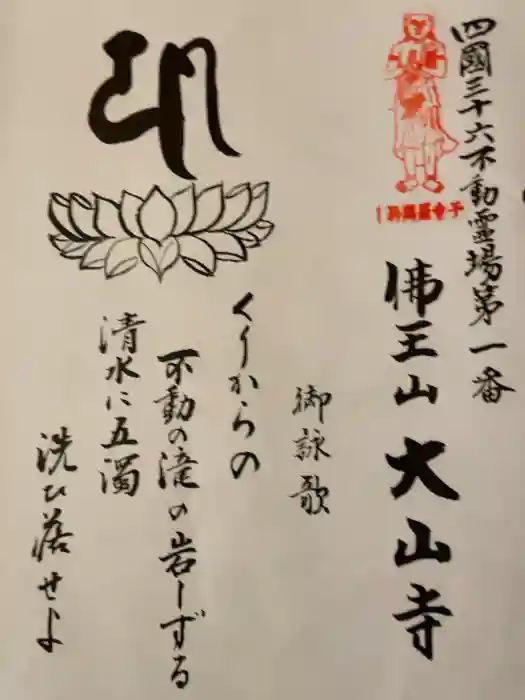 四國三十六不動霊場第一番
佛王山大山寺
御詠歌
くりからの
不動の滝の岩しずる
清水に五濁
洗ひ落せよ